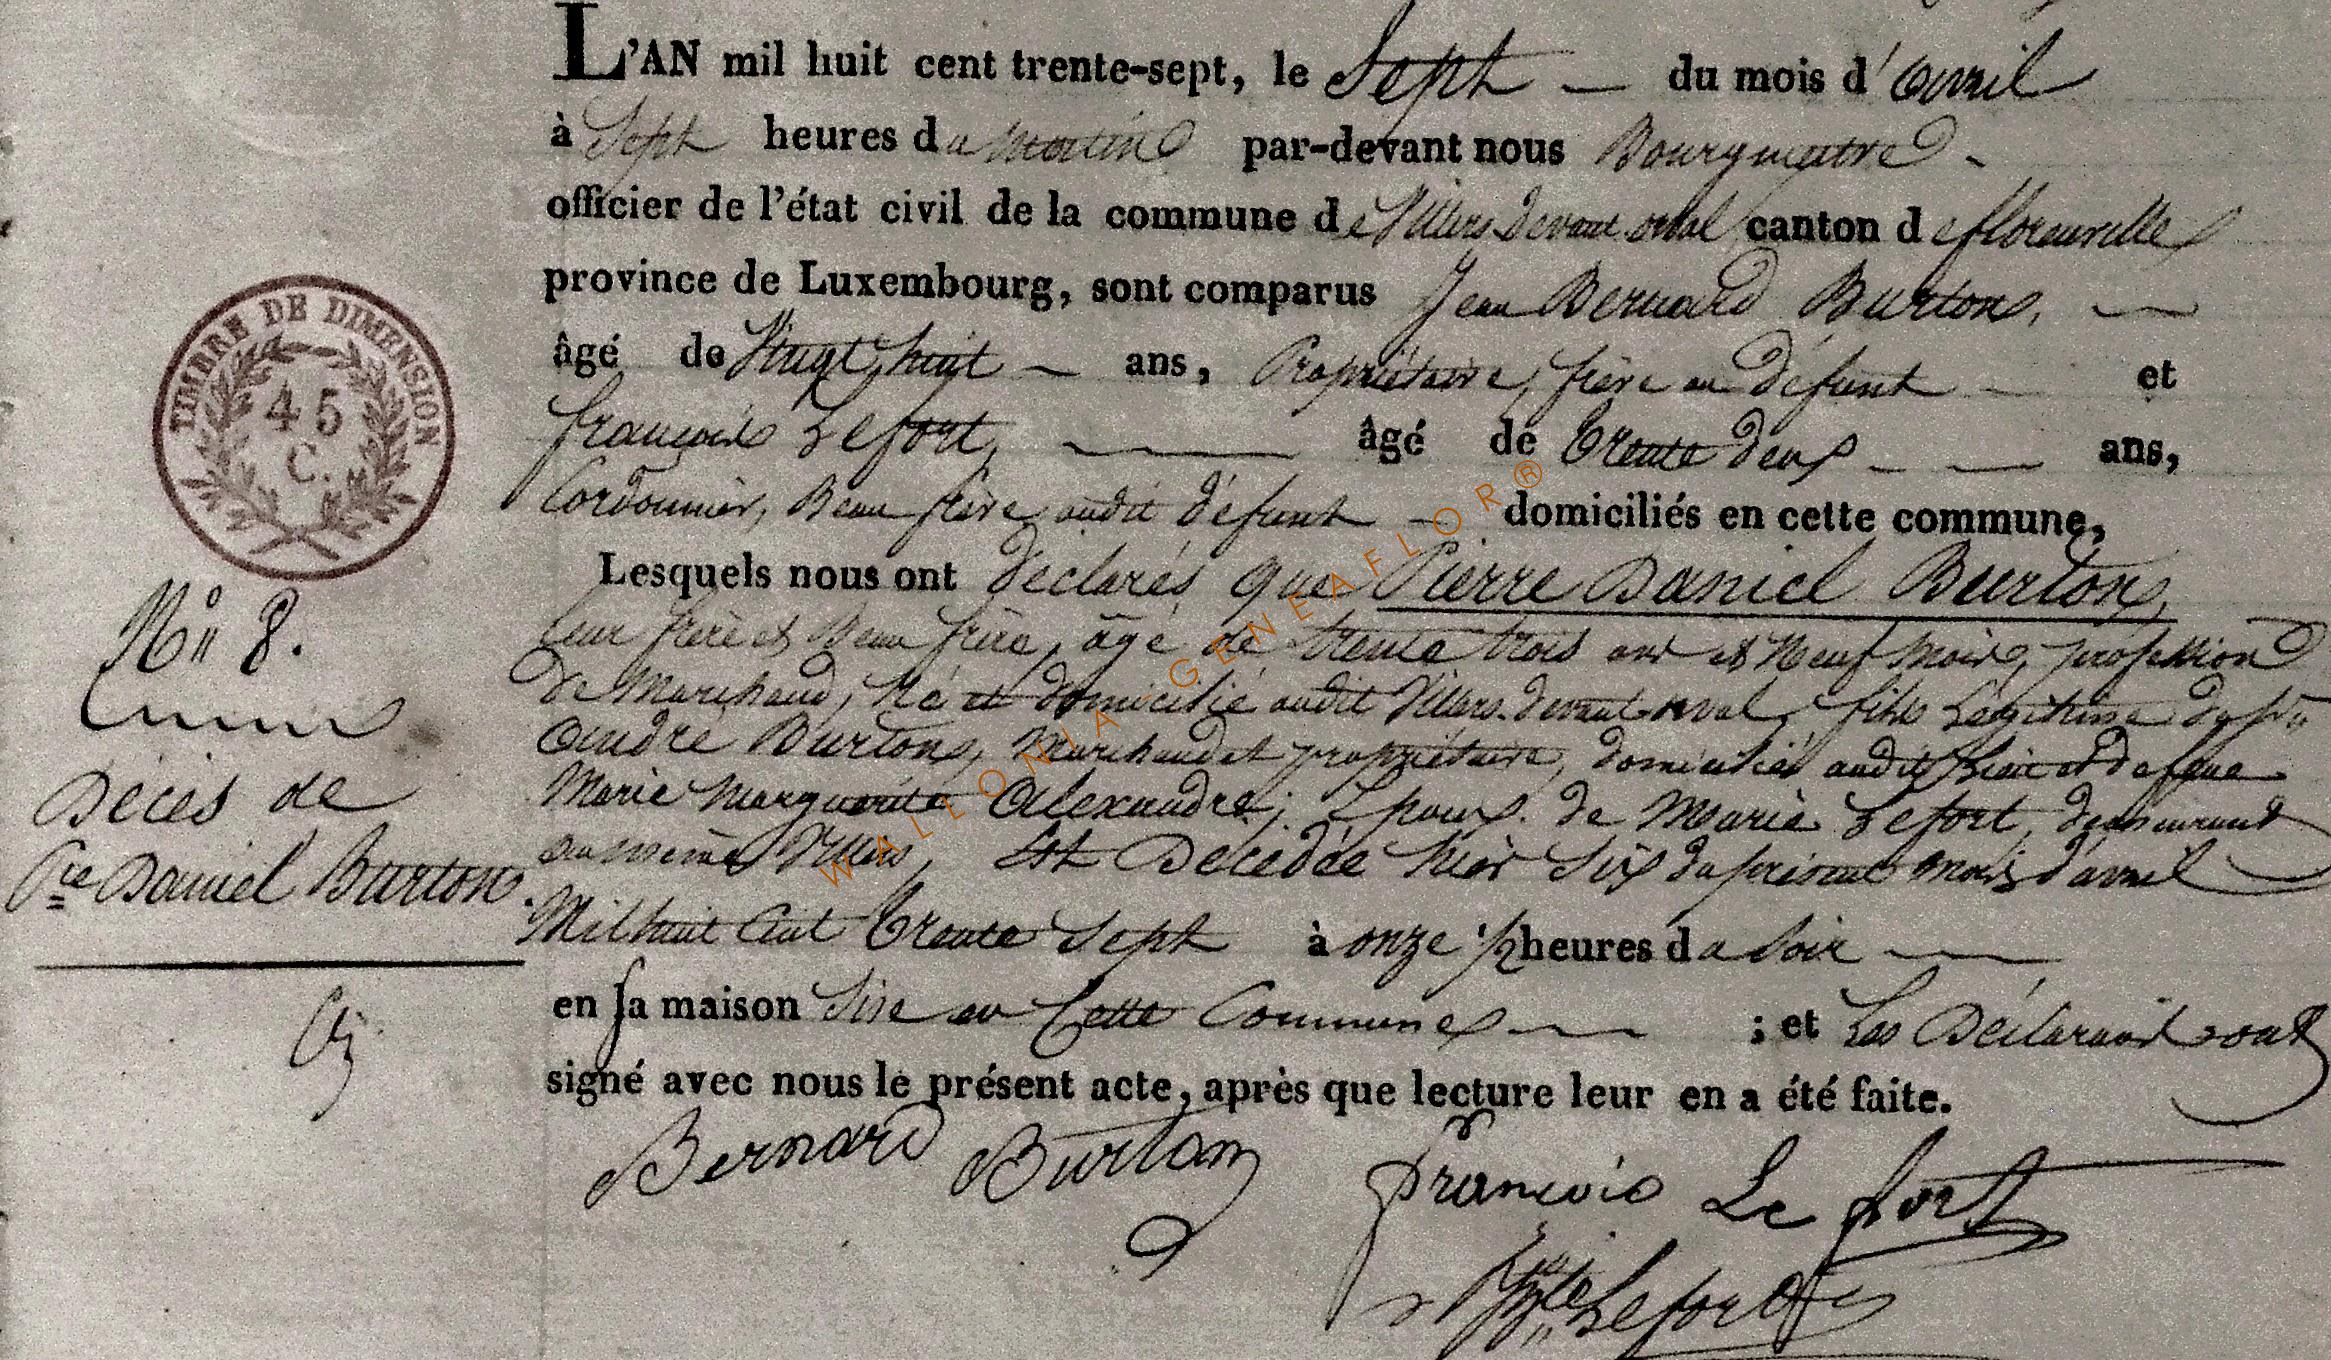 L'AN mil huit cent trente-sept, le Sept du mois d'avril
à Sept heures du matin par-devant nous Bourgmestre
officier de l'état civil de la commune de Villers devant orval canton de florenville
province de Luxembourg, sont comparus Jean Bernard Burton,
âgé de Vingt huit ans, Propriétaire, frère au défunt et
françois Lefort, âgé de trente deux ans,
Cordonnier, Beau frère audit défunt domiciliés en cette commune,
Lesquels nous ont déclarés que Pierre Daniel Burton,
leur frère et Beau frère, âgé de trente trois ans et Neuf mois, profession
de Marchand, né et domicilié audit Villers-devant-orval, fils Légitime
andré Burton, Marchand et propriétaire, domicilié audit lieu et de feue
Marie Marguerite Alexandre; Epoux de Marie Lefort, demeurant
au même Villers, Est Décédée hier Six du présent mois d'avril
Mil huit Cent trente Sept à onze 1/2 heures du soir
en sa maison Sise en Cette Commune ; et Les Déclarants ont
signé avec nous le présent acte, après que lecture leur en a été faite.
Bernard Burton
François Le fort
Lefort
TIMBRE DE DIMENSION
45
C.
N° 8.
Décès de
Pre Daniel Burton.
WALLONIA-GENEAFLOR®